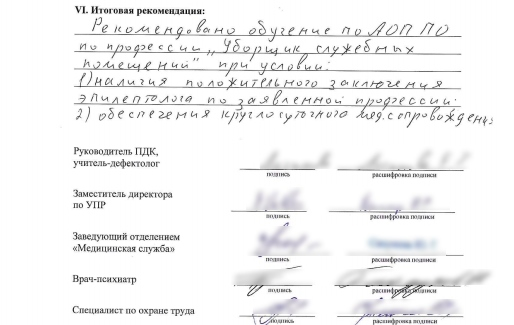 VI. Итоговая рекомендация:
Рекомендовано обучение по АОП ПО
по профессии „Уборщик служебных
помещений" при условии:
1) наличия положительного заключения
эпилептолога по заявленной профессии;
2) обеспечения круглосуточного мед. сопровождения
Руководитель ПДК,
учитель-дефектолог
подпись расшифровка подписи
Заместитель директора
по УПР
подпись расшифровка подписи
Заведующий отделением
«Медицинская служба»
подпись расшифровка подписи
Врач-психиатр
подпись расшифровка подписи
Специалист по охране труда
подпись расшифровка подписи